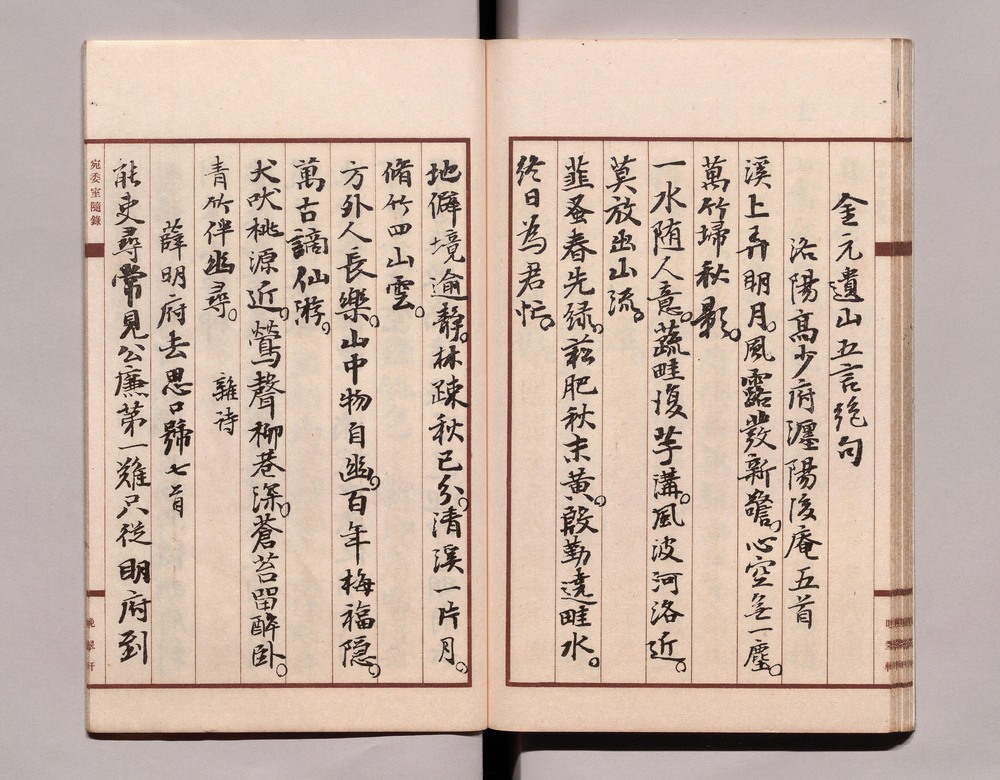 金元遺山五言絕句
洛陽高少府瀍陽後庵五首
溪上弄明月。風露發新警。心空無一塵。
萬竹掃秋影。
一水随人意。蔬畦復芋溝。風波河洛近。
莫放出山流。
韮蚤春先緑。菘肥秋未黄。殷勤遶畦水。
終日為君忙。
地僻境逾静。林疎秋已分。清溪一片月。
脩竹四山雲。
方外人長樂。山中物自幽。百年梅福隱。
萬古謫仙游。
犬吠桃源近。鶯聲柳巷深。蒼苔留醉卧。
青竹伴幽尋。 雜诗
薛明府去思口號七首
能吏尋常見公廉第一難只從明府到
宛委室隨錄
晚翠軒